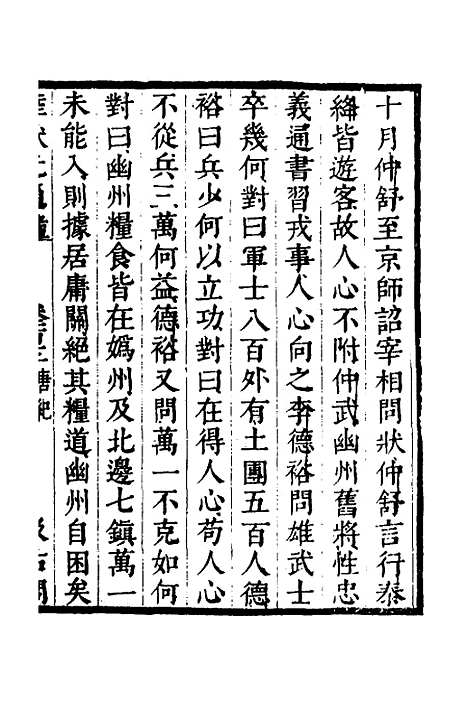 十月仲舒至京師詔宰相問狀仲舒言行泰
絳皆遊客故人心不附仲武幽州舊將性忠
義通書習戎事人心向之李德裕問雄武士
卒幾何對曰軍士八百外有土團五百人德
裕曰兵少何以立功對曰在得人心苟人心
不從兵三萬何益德裕又問萬一不克如何
對曰幽州糧食皆在媯州及北邊七鎮萬一
未能入則據居庸關絕其糧道幽州自困矣